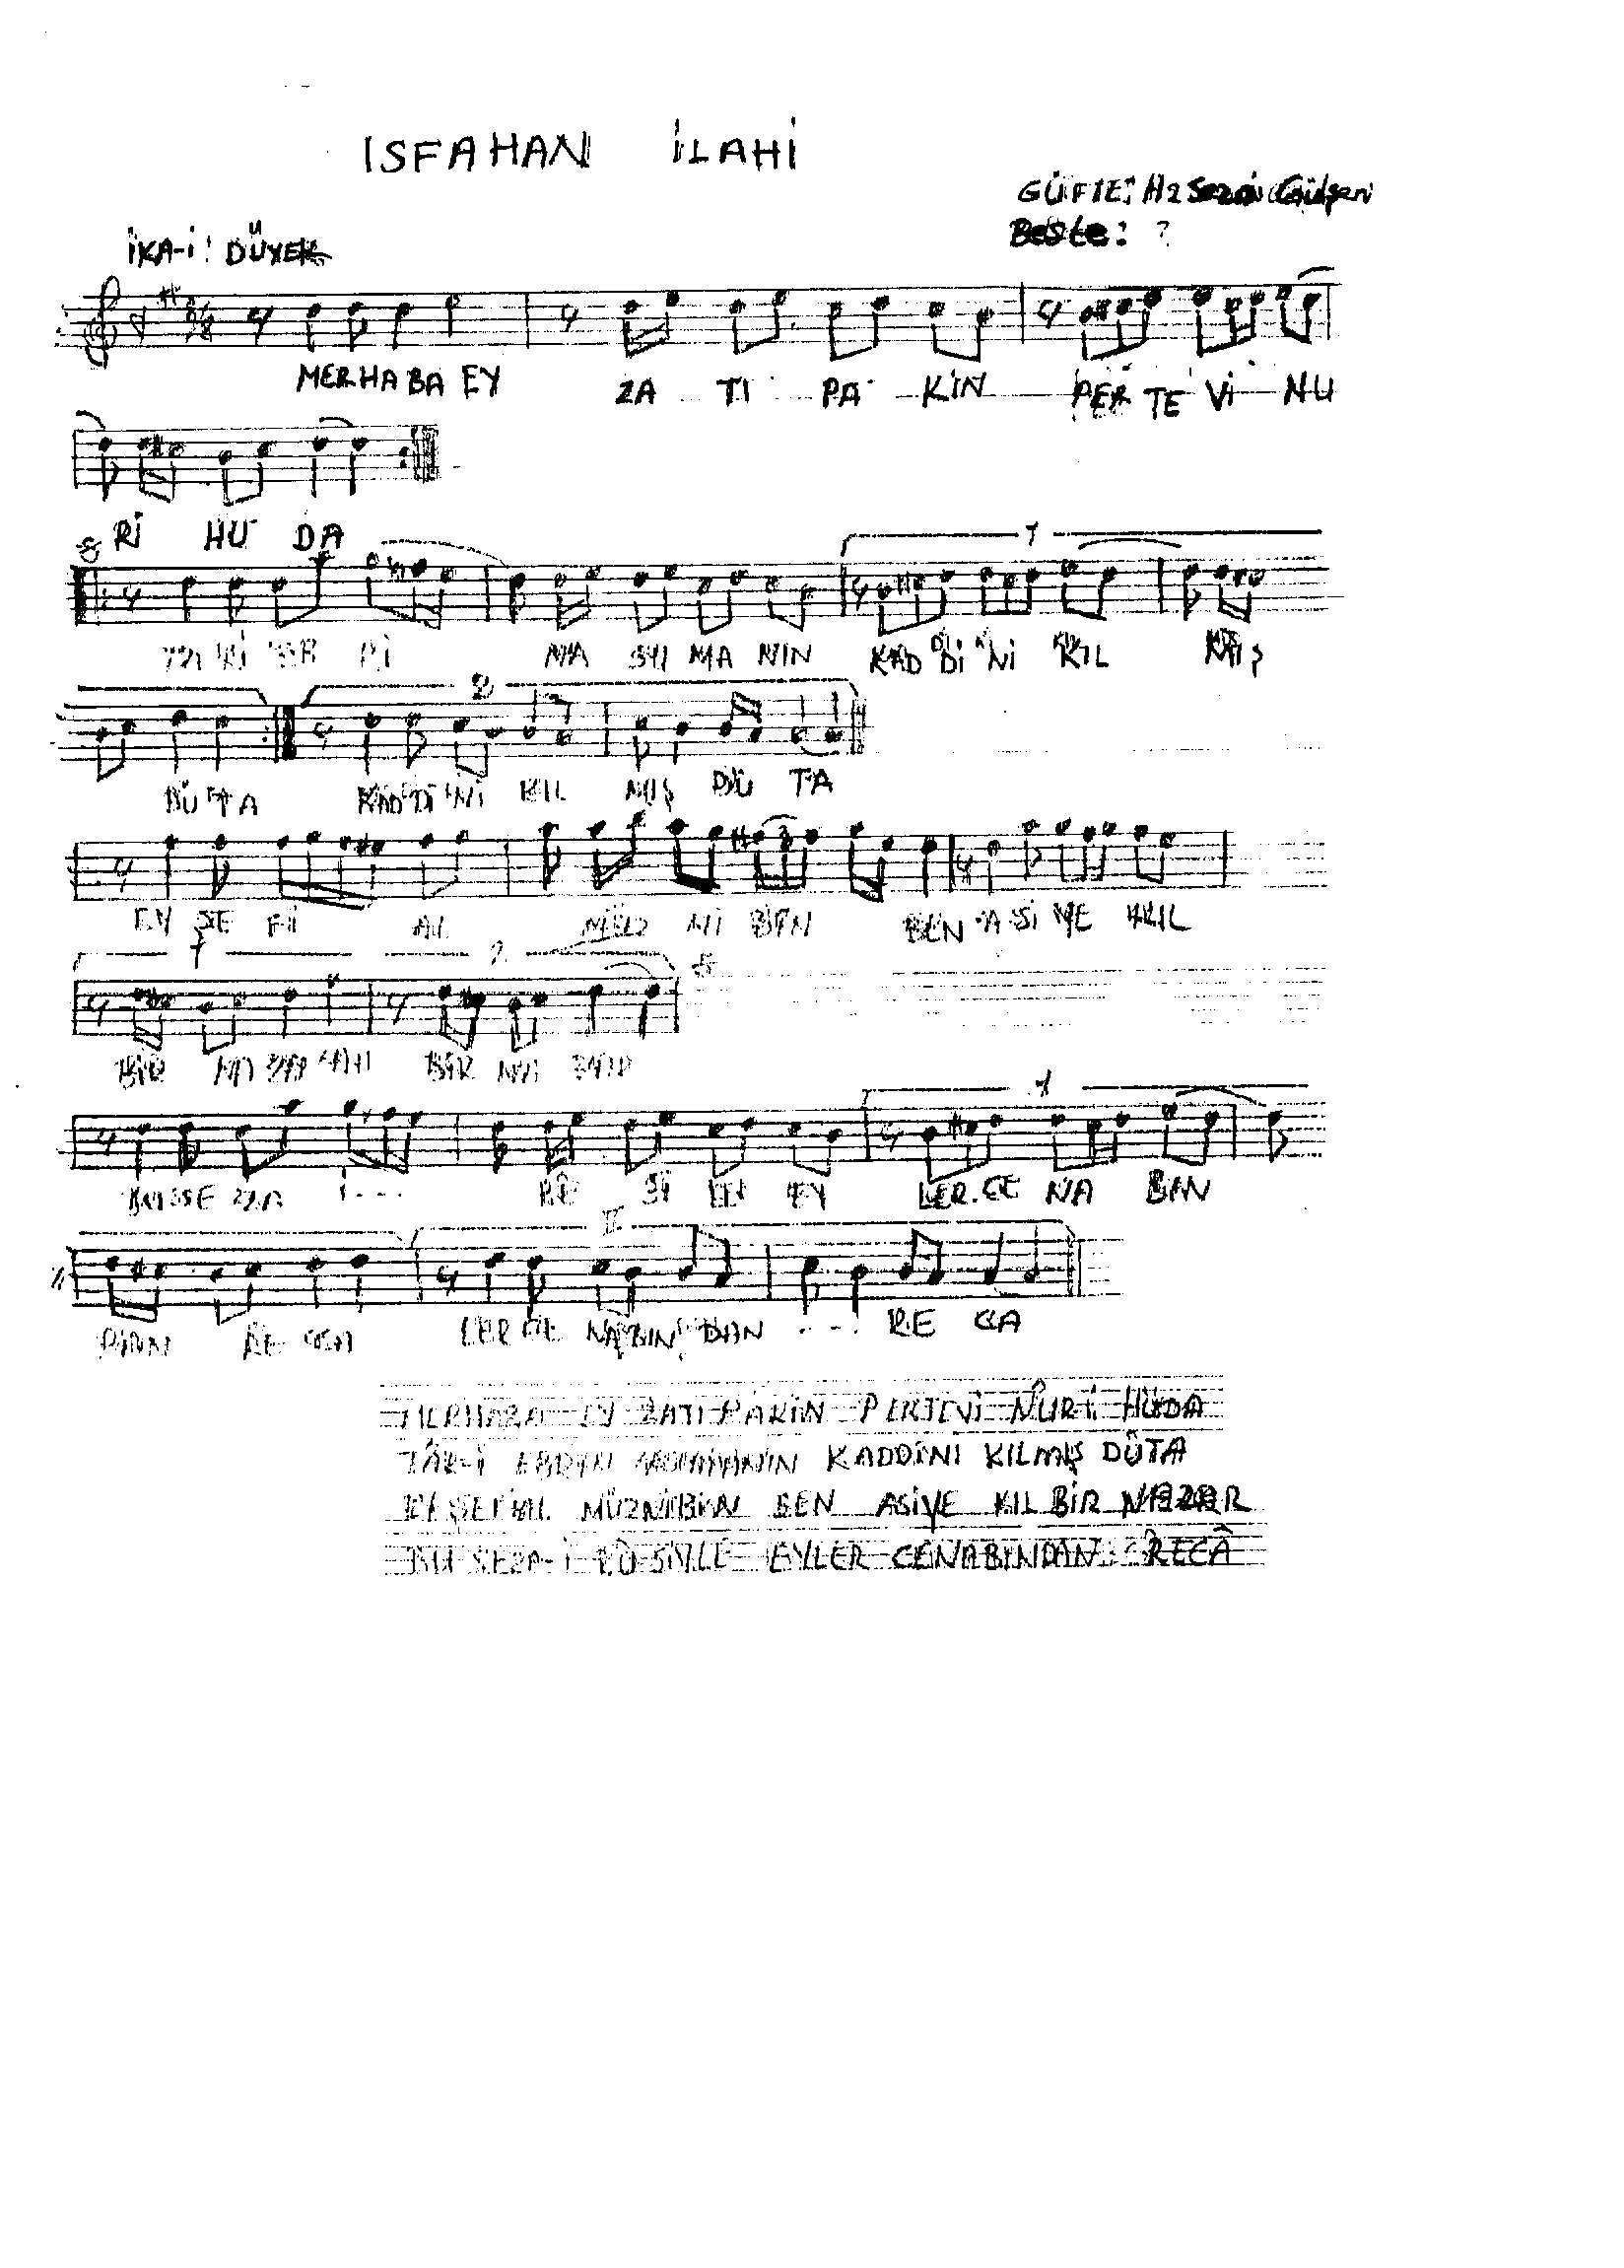 ISFAHAN İLAHİ
GÜFTE: Hz Sezai Gülşeni
Beste: ?
İKA-İ: DÜYEK
MERHABA EY ZA TI PA KİN PER TE Vİ NU
Rİ HU DA
1
MA NIN KAD Dİ Nİ KIL MIŞ
2
DÜ TA KAD Dİ Nİ KIL MIŞ DÜ TA
EY ŞE Fİ AL MÜZ Nİ BİN BEN A Sİ YE KIL
1 2
BİR NA ZAR AH BİR NA ZAR
1
BU SE ZA İ... EY LER CE NA BIN
II
DAN RE CA LER CE NA BIN DAN .... RE CA
MERHABA EY ZATI PAKİN PERTEVİ NÛRİ HÜDA
KADDİNİ KILMIŞ DÛTA
EY ŞEFİAL MÜZNİBİN BEN ASİYE KIL BİR NAZAR
BU SEZA-İ EYLER CENABINDAN RECÂ